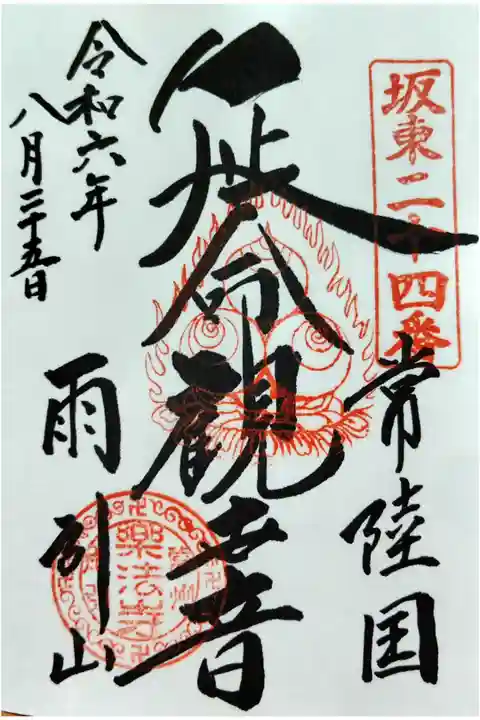 坂東二十四番
常陸国
延命觀音
雨引山
樂法寺
令和六年
八月二十五日